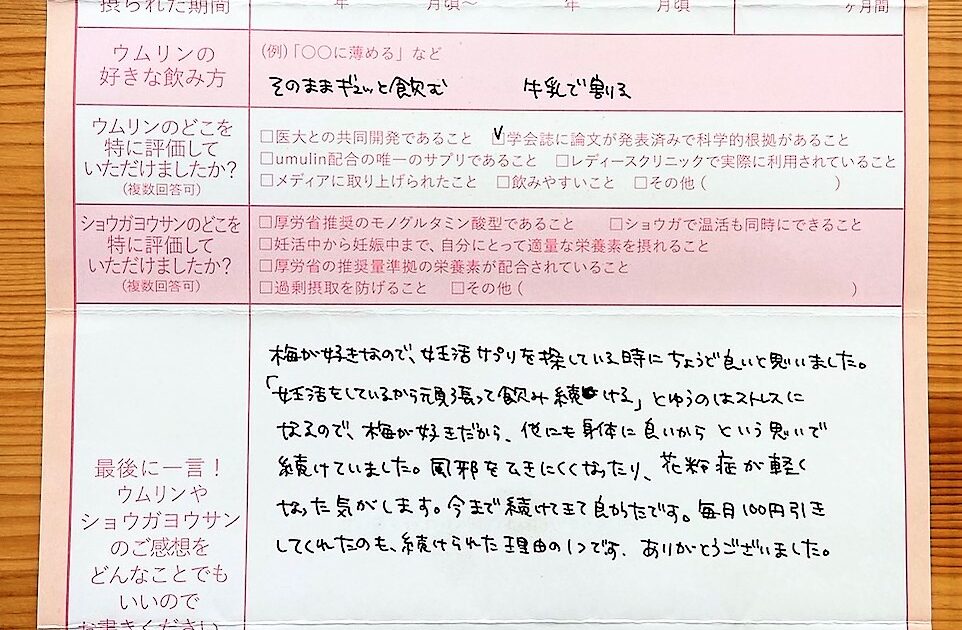 摂られた期間 年 月頃〜 年 月頃 ヶ月間
ウムリンの
好きな飲み方
(例)「〇〇に薄める」など
そのままギュッと飲む 牛乳で割る
ウムリンのどこを
特に評価して
いただけましたか?
(複数回答可)
□医大との共同開発であること ☑学会誌に論文が発表済みで科学的根拠があること
□umulin配合の唯一のサプリであること □レディースクリニックで実際に利用されていること
□メディアに取り上げられたこと □飲みやすいこと □その他( )
ショウガヨウサンのどこを
特に評価して
いただけましたか?
(複数回答可)
□厚労省推奨のモノグルタミン酸型であること □ショウガで温活も同時にできること
□妊活中から妊娠中まで、自分にとって適量な栄養素を摂れること
□厚労省の推奨量準拠の栄養素が配合されていること
□過剰摂取を防げること □その他( )
最後に一言!
ウムリンや
ショウガヨウサン
のご感想を
どんなことでも
いいので
お書きください。
梅が好きなので、妊活サプリを探している時にちょうど良いと思いました。
「妊活をしているから頑張って飲み続ける」とゆうのはストレスに
なるので、梅が好きだから、他にも身体に良いから という思いで
続けていました。風邪をひきにくくなったり、花粉症が軽く
なった気がします。今まで続けてきて良かったです。毎月100円引き
してくれたのも、続けられた理由の1つです。ありがとうございました。